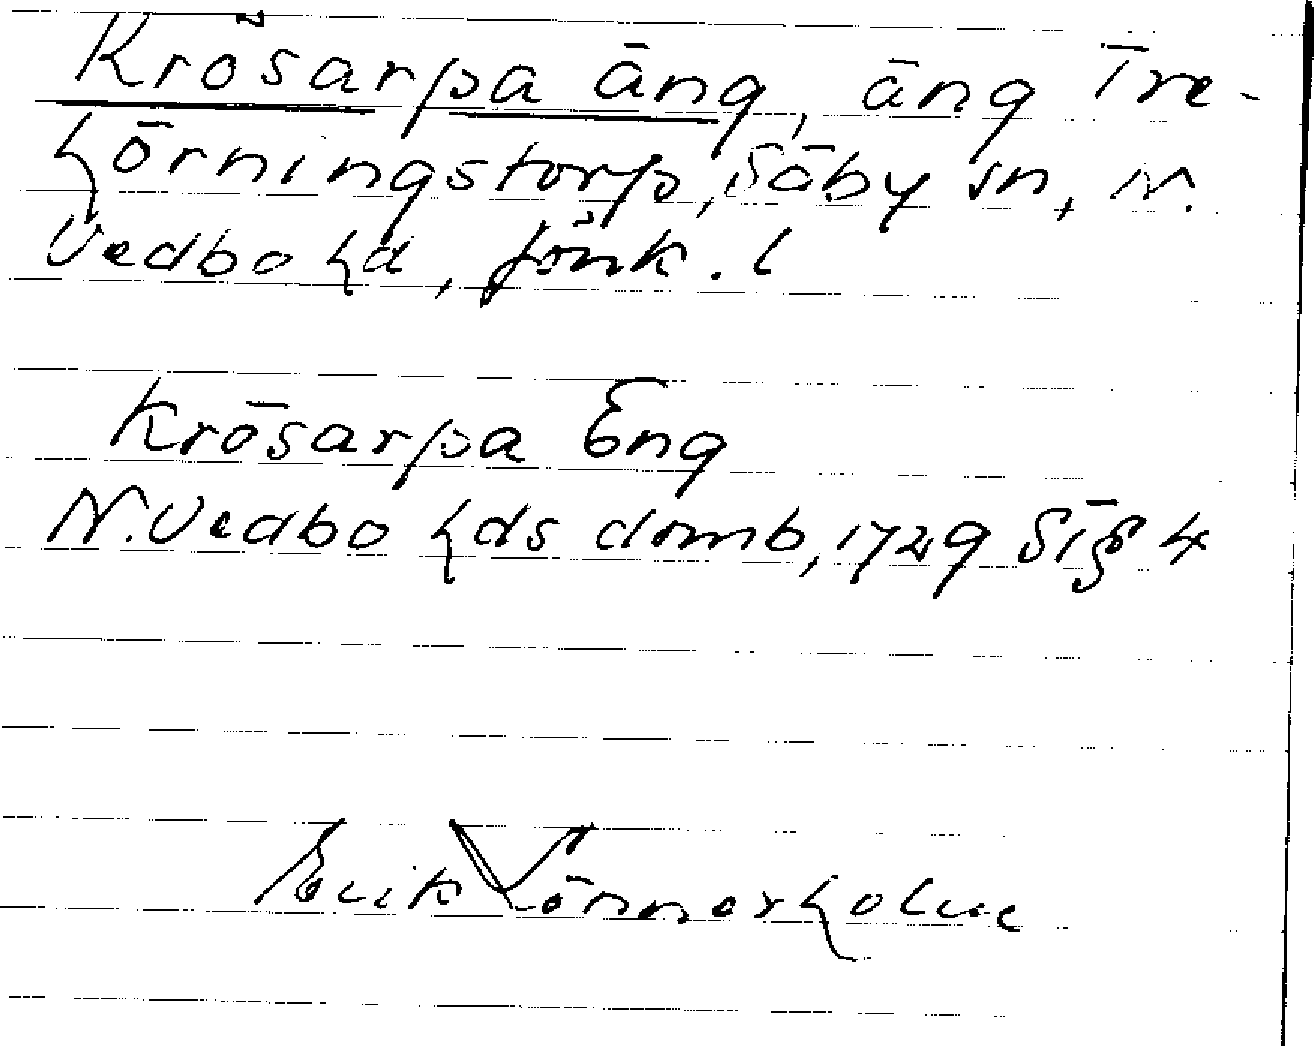 Krösarpa äng, äng Tre-
hörningstorp, Säby sn, N.
Vedbo hd, Jönk. l
Krösarpa Eng
N. Vedbo hds domb, 1729 S1 § 4
Erik Lönnerholm